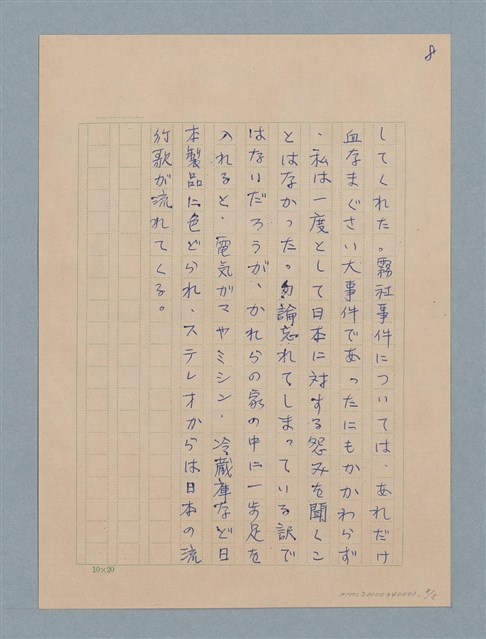 8
してくれた。霧社事件については、あれだけ
血なまぐさい大事件であったにもかかわらず
、私は一度として日本に対する怨みを聞くこ
とはなかった。勿論忘れてしまっている訳で
はないだろうが、かれらの家の中に一歩足を
入れると、電気ガマやミシン、冷蔵庫など日
本製品に色どられ、ステレオからは日本の流
行歌が流れてくる。
10×20